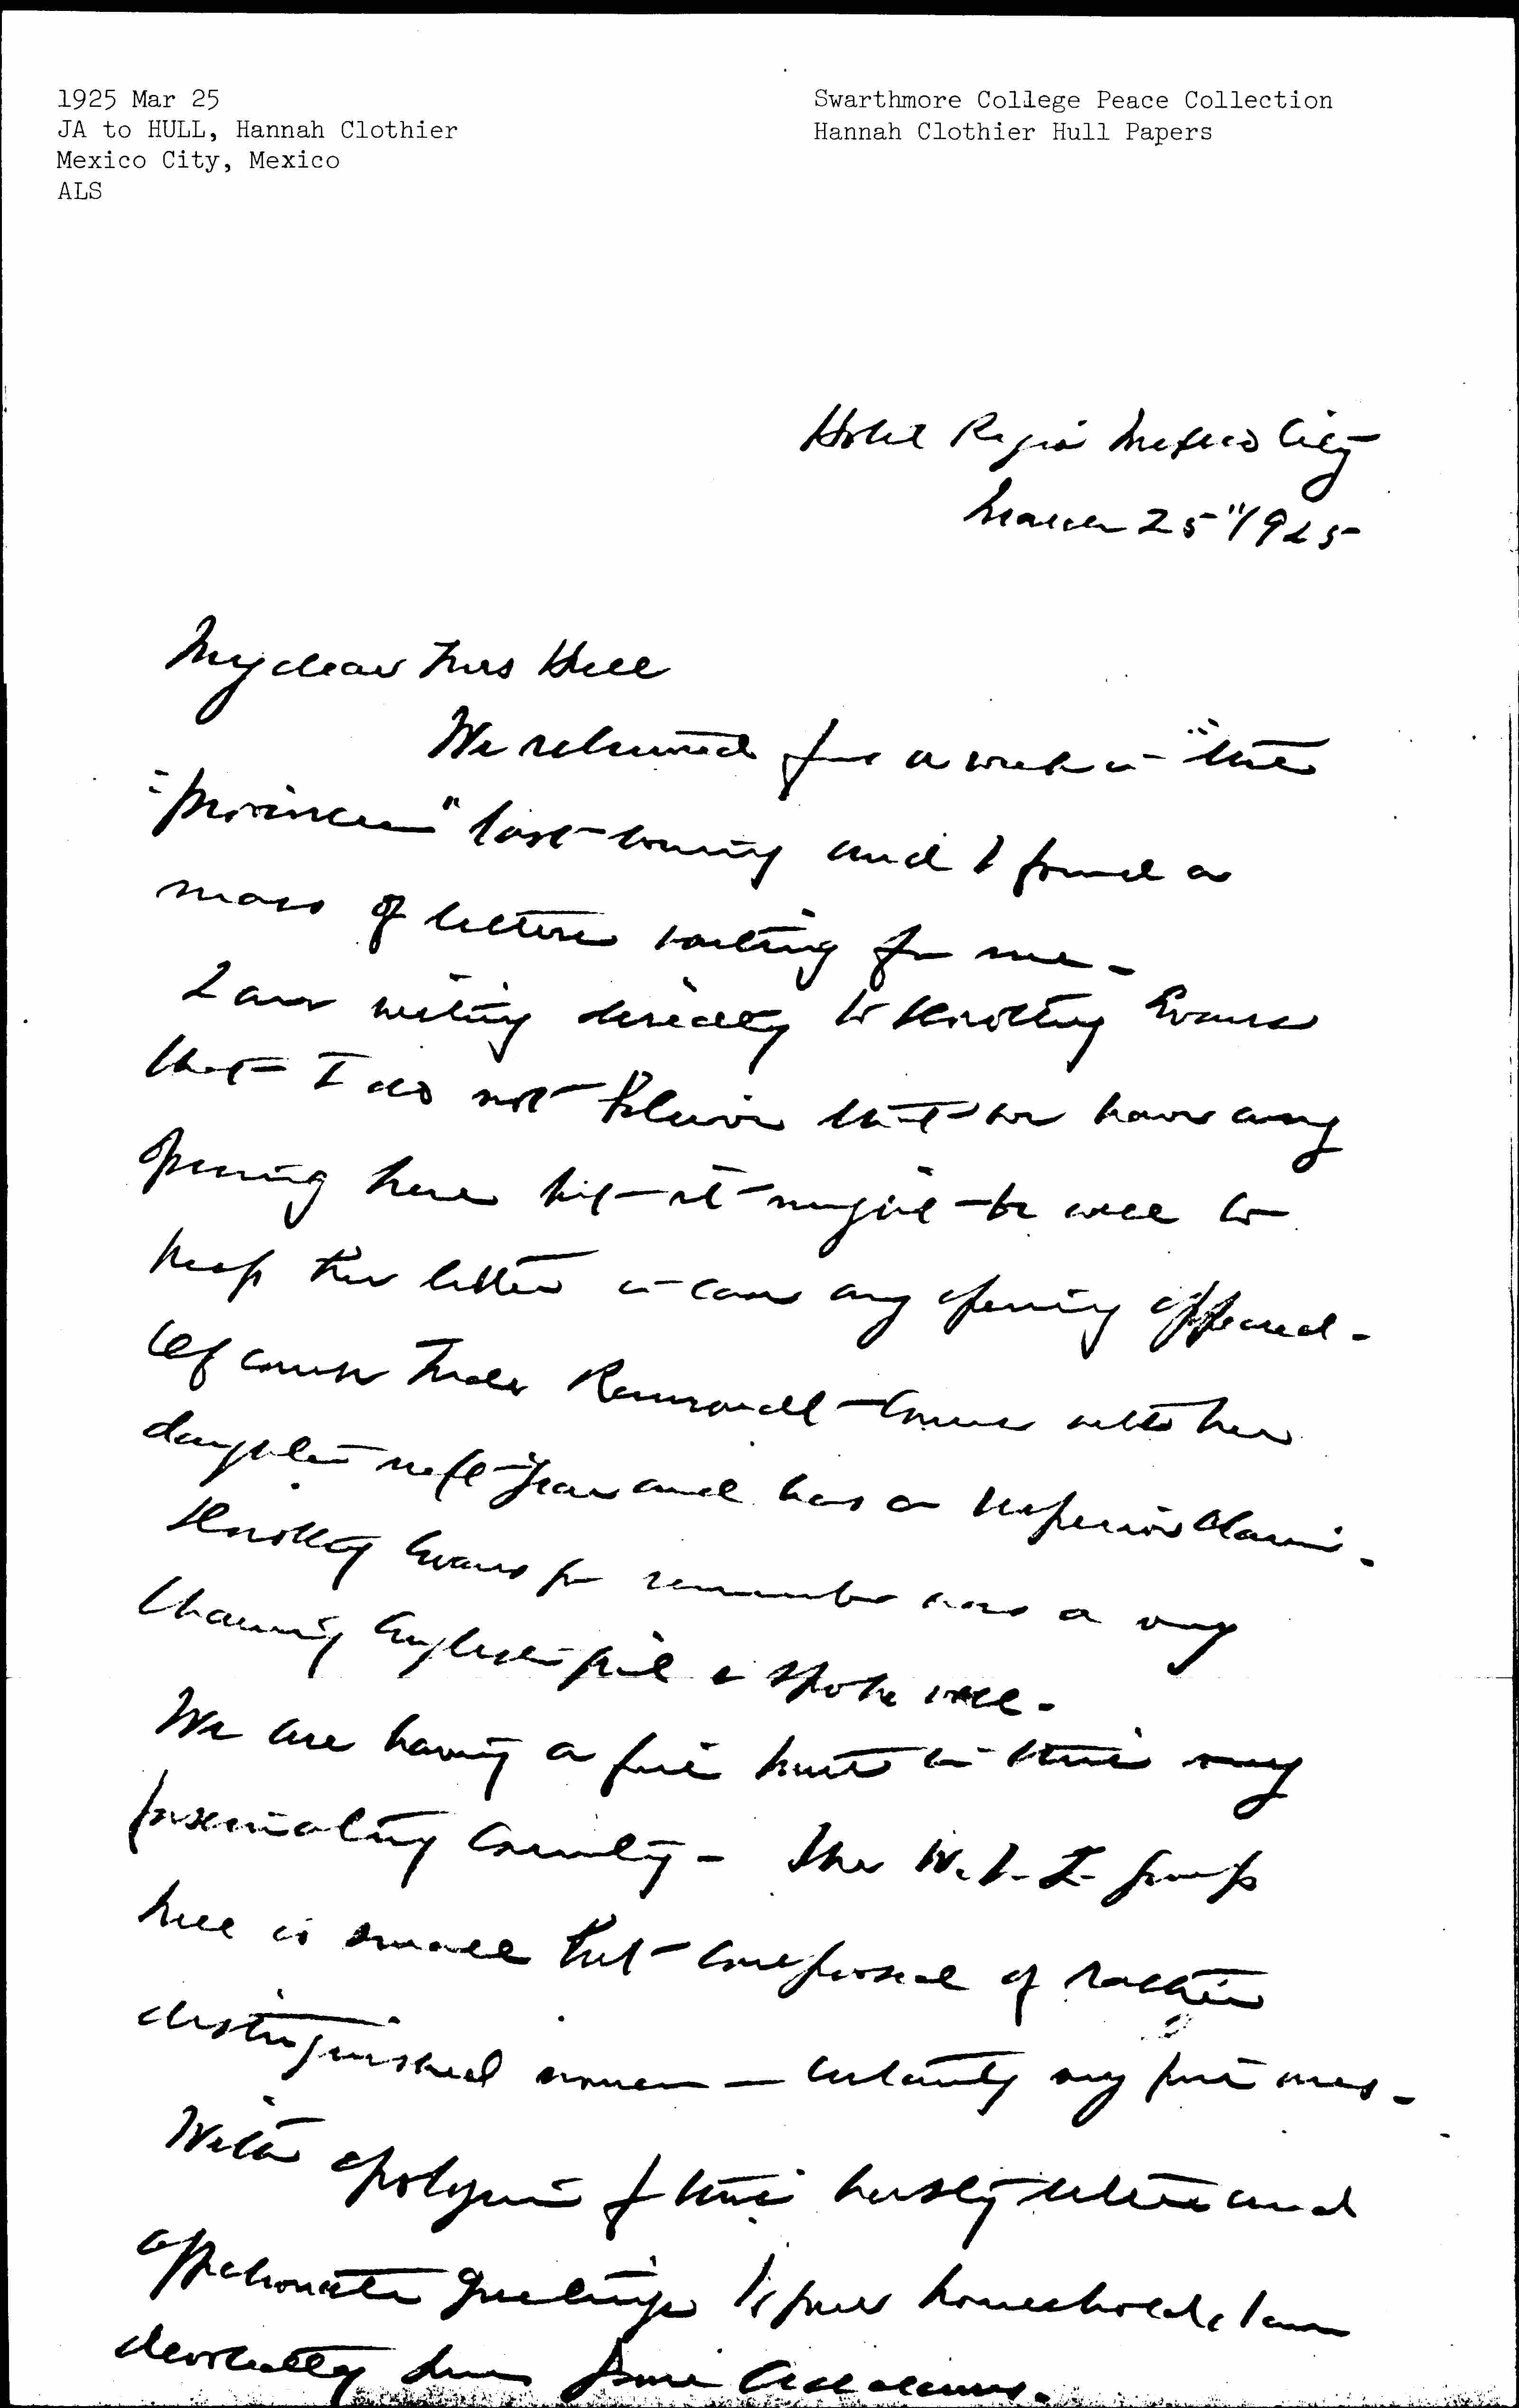 1925 Mar 25
JA to HULL, Hannah Clothier
Mexico City, Mexico
ALS
Swarthmore College Peace Collection
Hannah Clothier Hull Papers
Hotel Regis Mexico City
March 25" 1925
My dear Mrs Hull
We returned from a week in "the
"provinces" last evening and I found a
mass of letters waiting for me -
I am writing directly to Dorothy Evans
that I do not believe that we have any
opening here but it might be well to
keep the letter in case any opening appeared -
Of course Mrs Ramondt comes with her
daughter next year and has a superior claim -
Dorothy Evans you remember was a very
charming English girl & spoke well -
We are having a fine time in this very
fascinating country - The W. I. L. group
here is small but composed of rather
distinguished women - certainly very fine ones -
With apologies for this hasty letter and
affectionate greetings to your household, I am
devotedly yours Jane Addams.